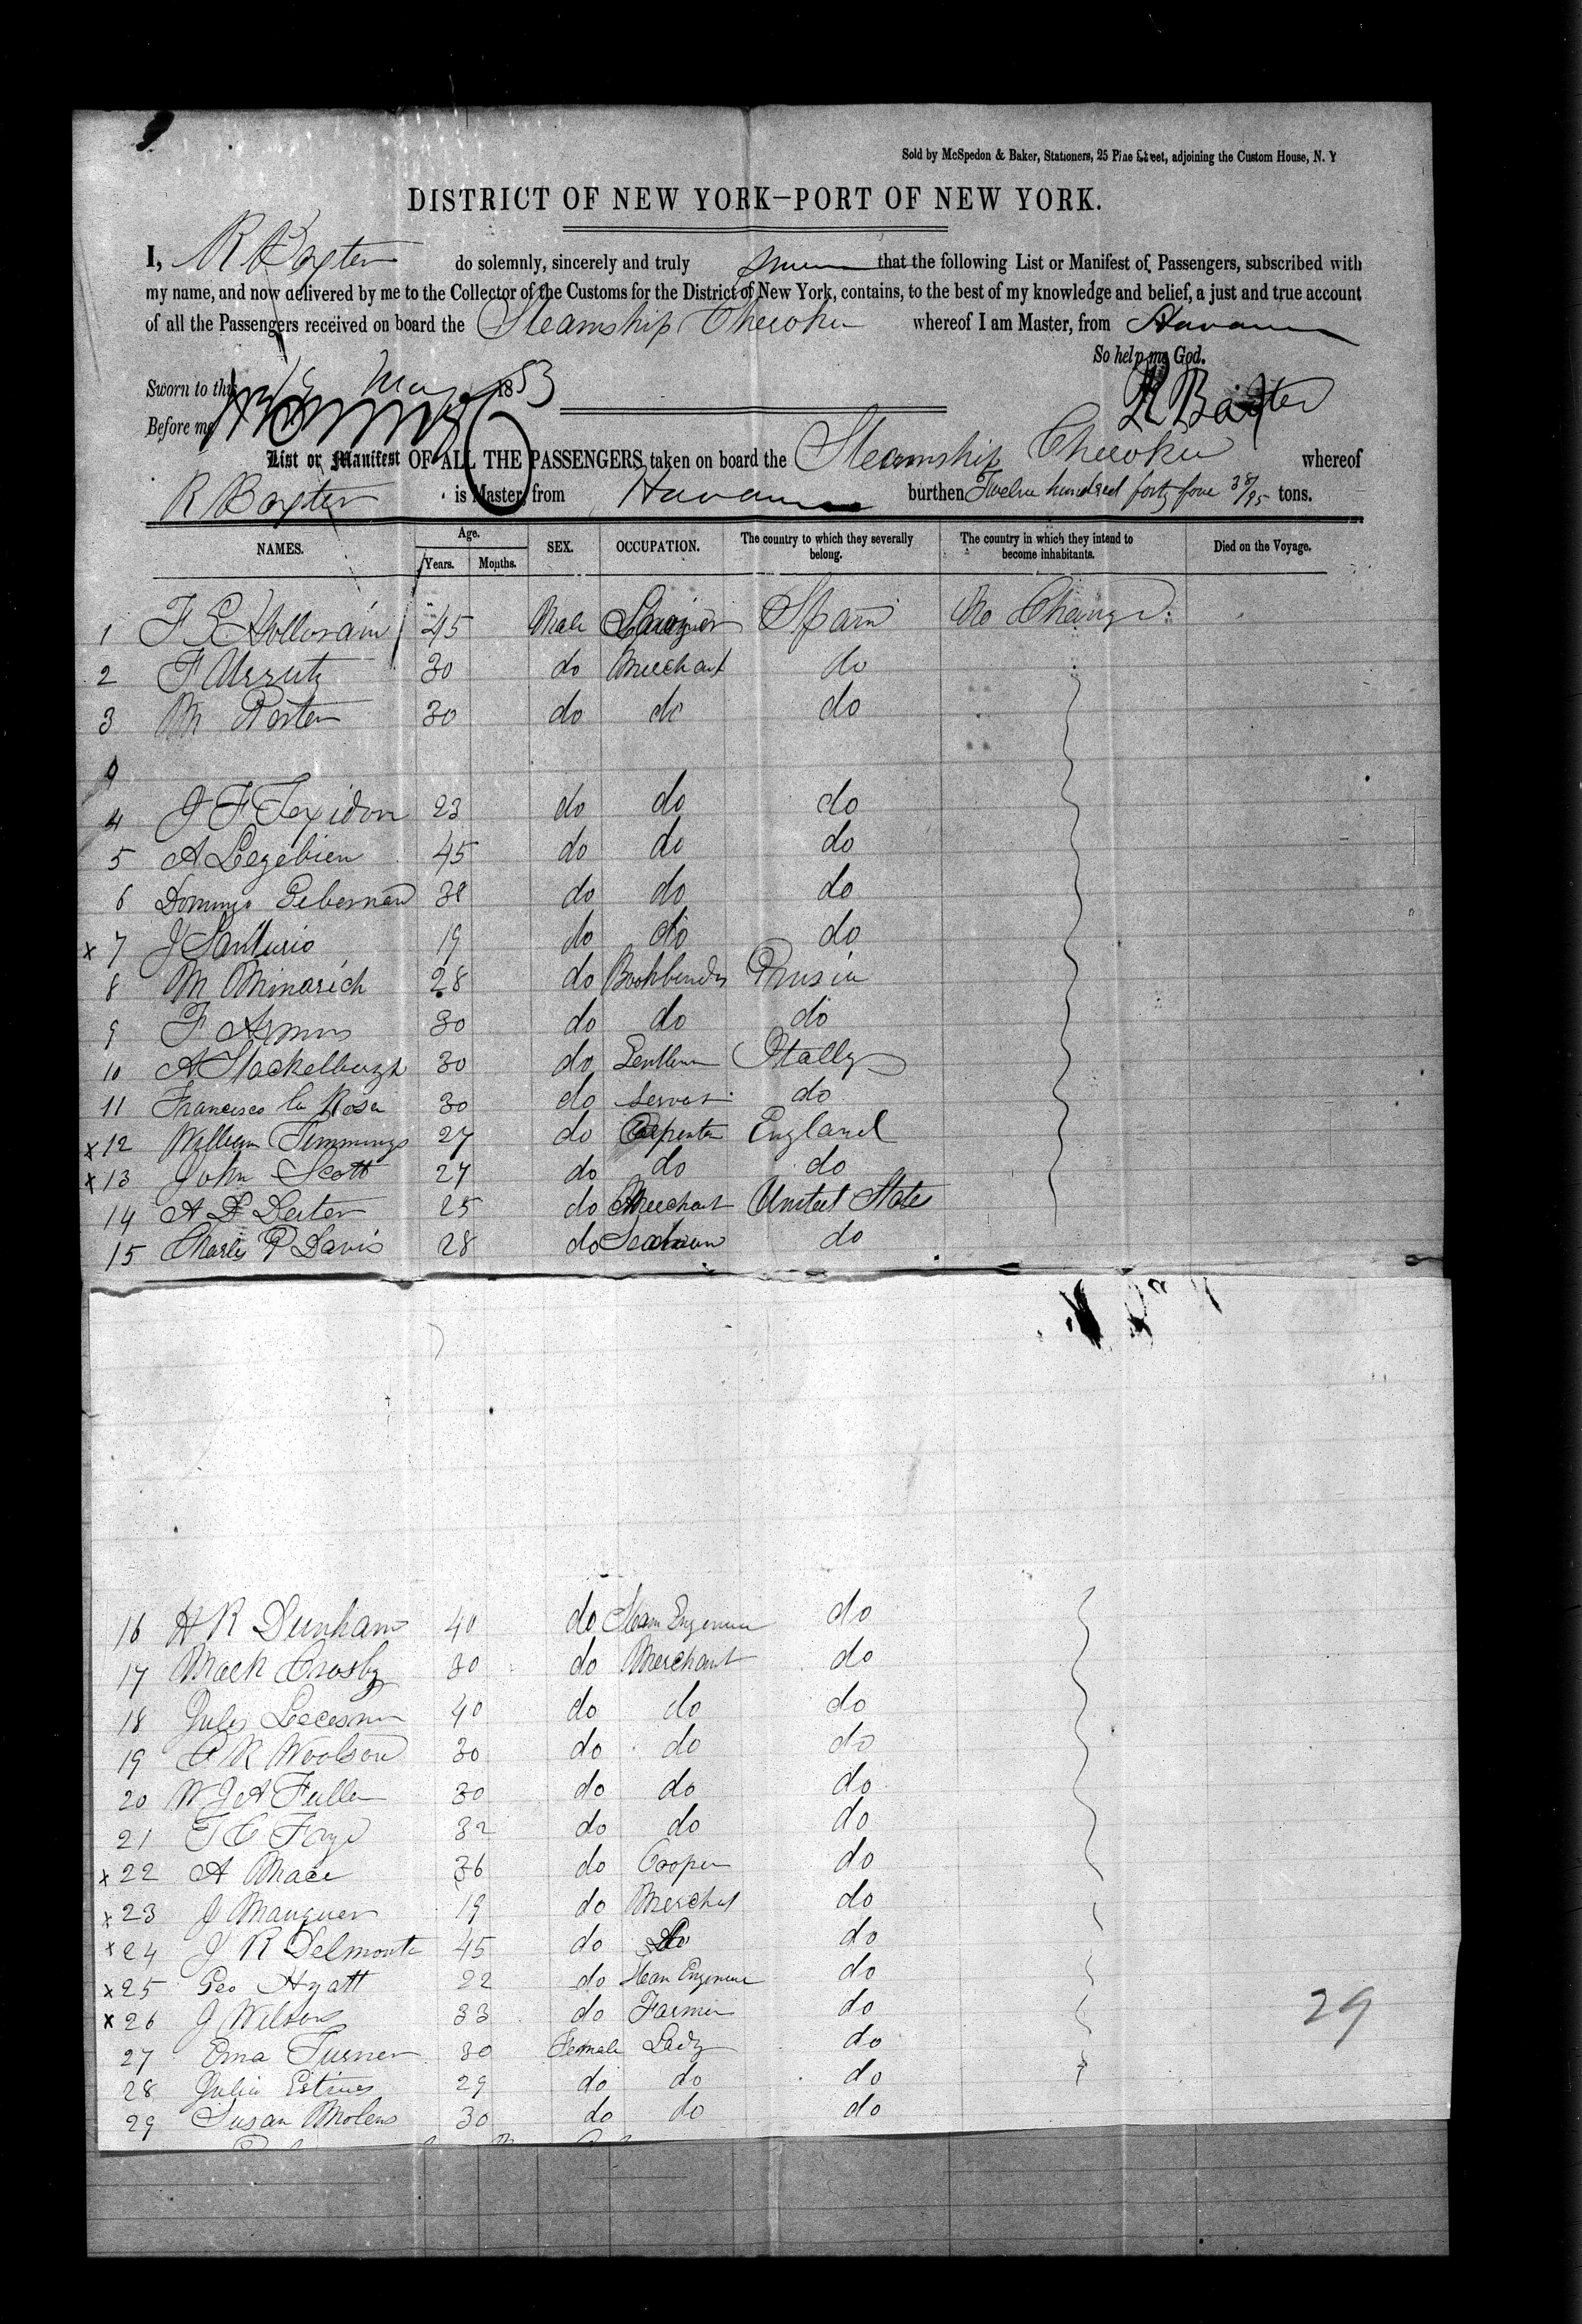 Sold by McSpedon & Baker, Stationers, 25 Pine Street, adjoining the Custom House, N. Y
DISTRICT OF NEW YORK—PORT OF NEW YORK.
I, R Baxter do solemnly, sincerely and truly swear that the following List or Manifest of Passengers, subscribed with
my name, and now delivered by me to the Collector of the Customs for the District of New York, contains, to the best of my knowledge and belief, a just and true account
of all the Passengers received on board the Steamship Cherokee whereof I am Master, from Havana
So help me God.
Sworn to this May 1853
R Baxter
Before me
List or Manifest OF ALL THE PASSENGERS taken on board the Steamship Cherokee whereof
R Baxter is Master, from Havana burthen Twelve hundred forty four 38/95 tons.
NAMES. Age. Years. Months. SEX. OCCUPATION. The country to which they severally belong. The country in which they intend to become inhabitants. Died on the Voyage.
1 F 45 Male Spain No Change
2 F Urrutz 30 do Merchant do
3 M 30 do do do
4 J F Texidor 23 do do do
5 A 45 do do do
6 Domingo 38 do do do
x 7 J Santurio 19 do do do
8 M Minarich 28 do Bookbinder Prusia
9 F 30 do do do
10 A Stackelbergh 30 do Gentlem Itally
11 Francisco la Rosa 30 do Servant do
x 12 William Timmings 27 do Carpenter England
x 13 John Scott 27 do do do
14 A D 25 do Merchant United States
15 Charles P Davis 28 do do
16 H R Dunham 40 do Steam Engeneer do
17 Mack Crosby 30 do Merchant do
18 Jules Lecesne 40 do do do
19 R Woolson 30 do do do
20 W J A Fuller 30 do do do
21 32 do do do
x 22 A Mace 36 do Cooper do
x 23 J 19 do Merchat do
x 24 J R Delmonte 45 do Do do
x 25 Geo Hyatt 22 do Steam Engeneer do
x 26 J Wilson 33 do Farmer do
29
27 Ema Turner 30 Female Lady do
28 Julia 29 do do do
29 Susan 30 do do do